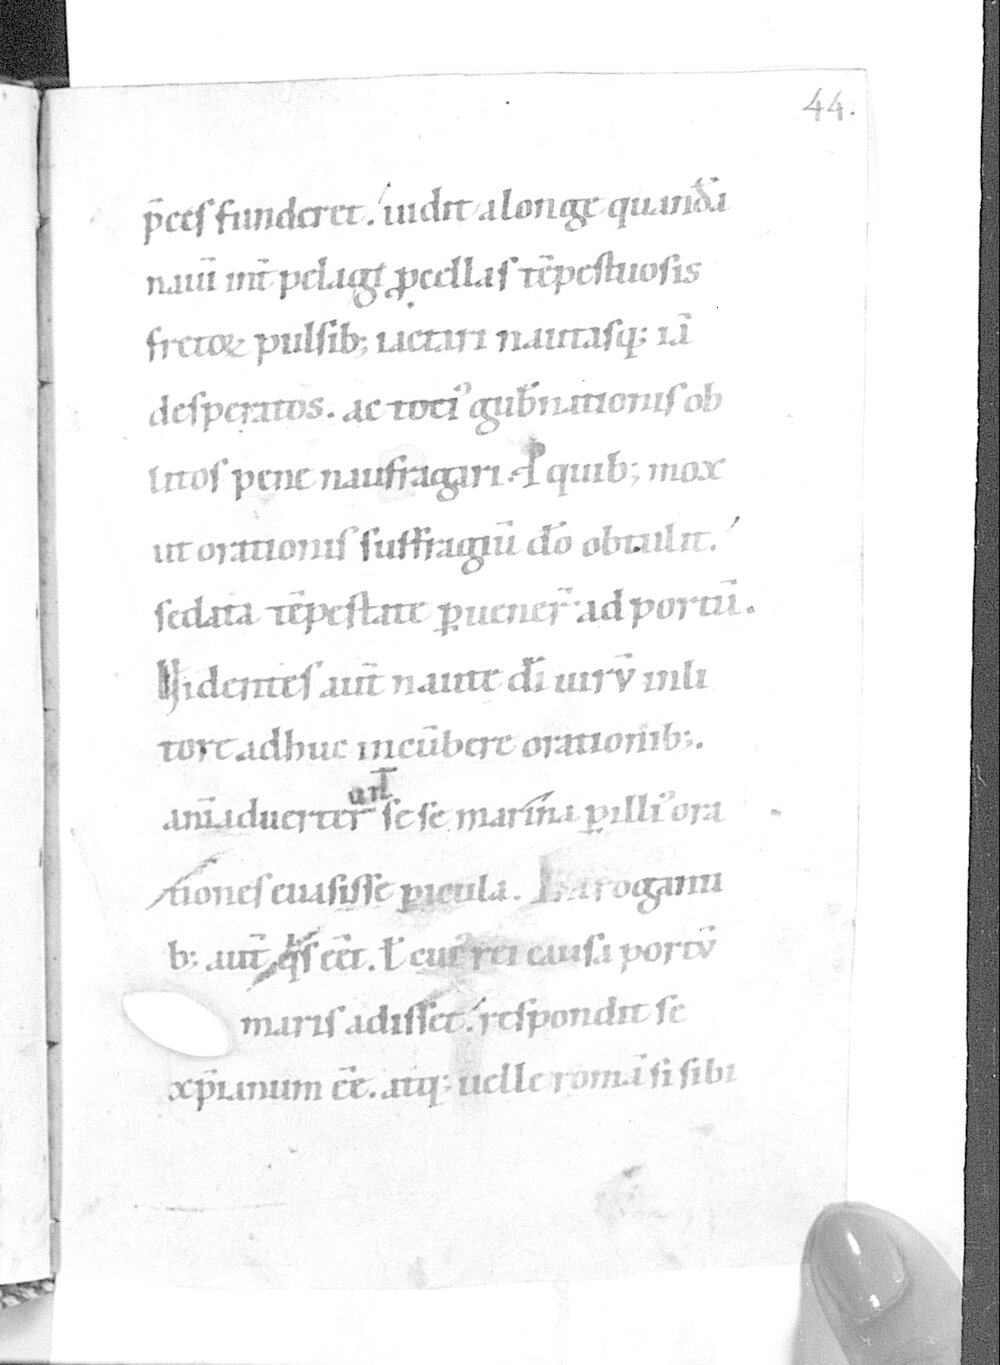 44.
p̄ces funderet. uidit a longe quandā
nauī int̄ pelagi ꝓcellas tēpestuosis
fretoꝝ pulsib; iactari nautasq; iā
desperatos. ac toci᾿ gub̄nationis ob
litos pene naufragari. P quib; mox
ut orationis suffragiū do̅ obtulit.
sedata tēpestate ꝑuener̄ ad portū.
Videntes aut̄ naute dī uirū in li
tore adhuc incūbere orationib;.
anīaduerter̄ sese marina ꝑ illi᾿ ora
tiones euasisse ꝑicula. Int̄roganti
b; aut̄ q̄s eēt. ł cui᾿ rei causa portū
maris adisset. respondit se
xp̄ianum eē. atq; uelle romā si sibi